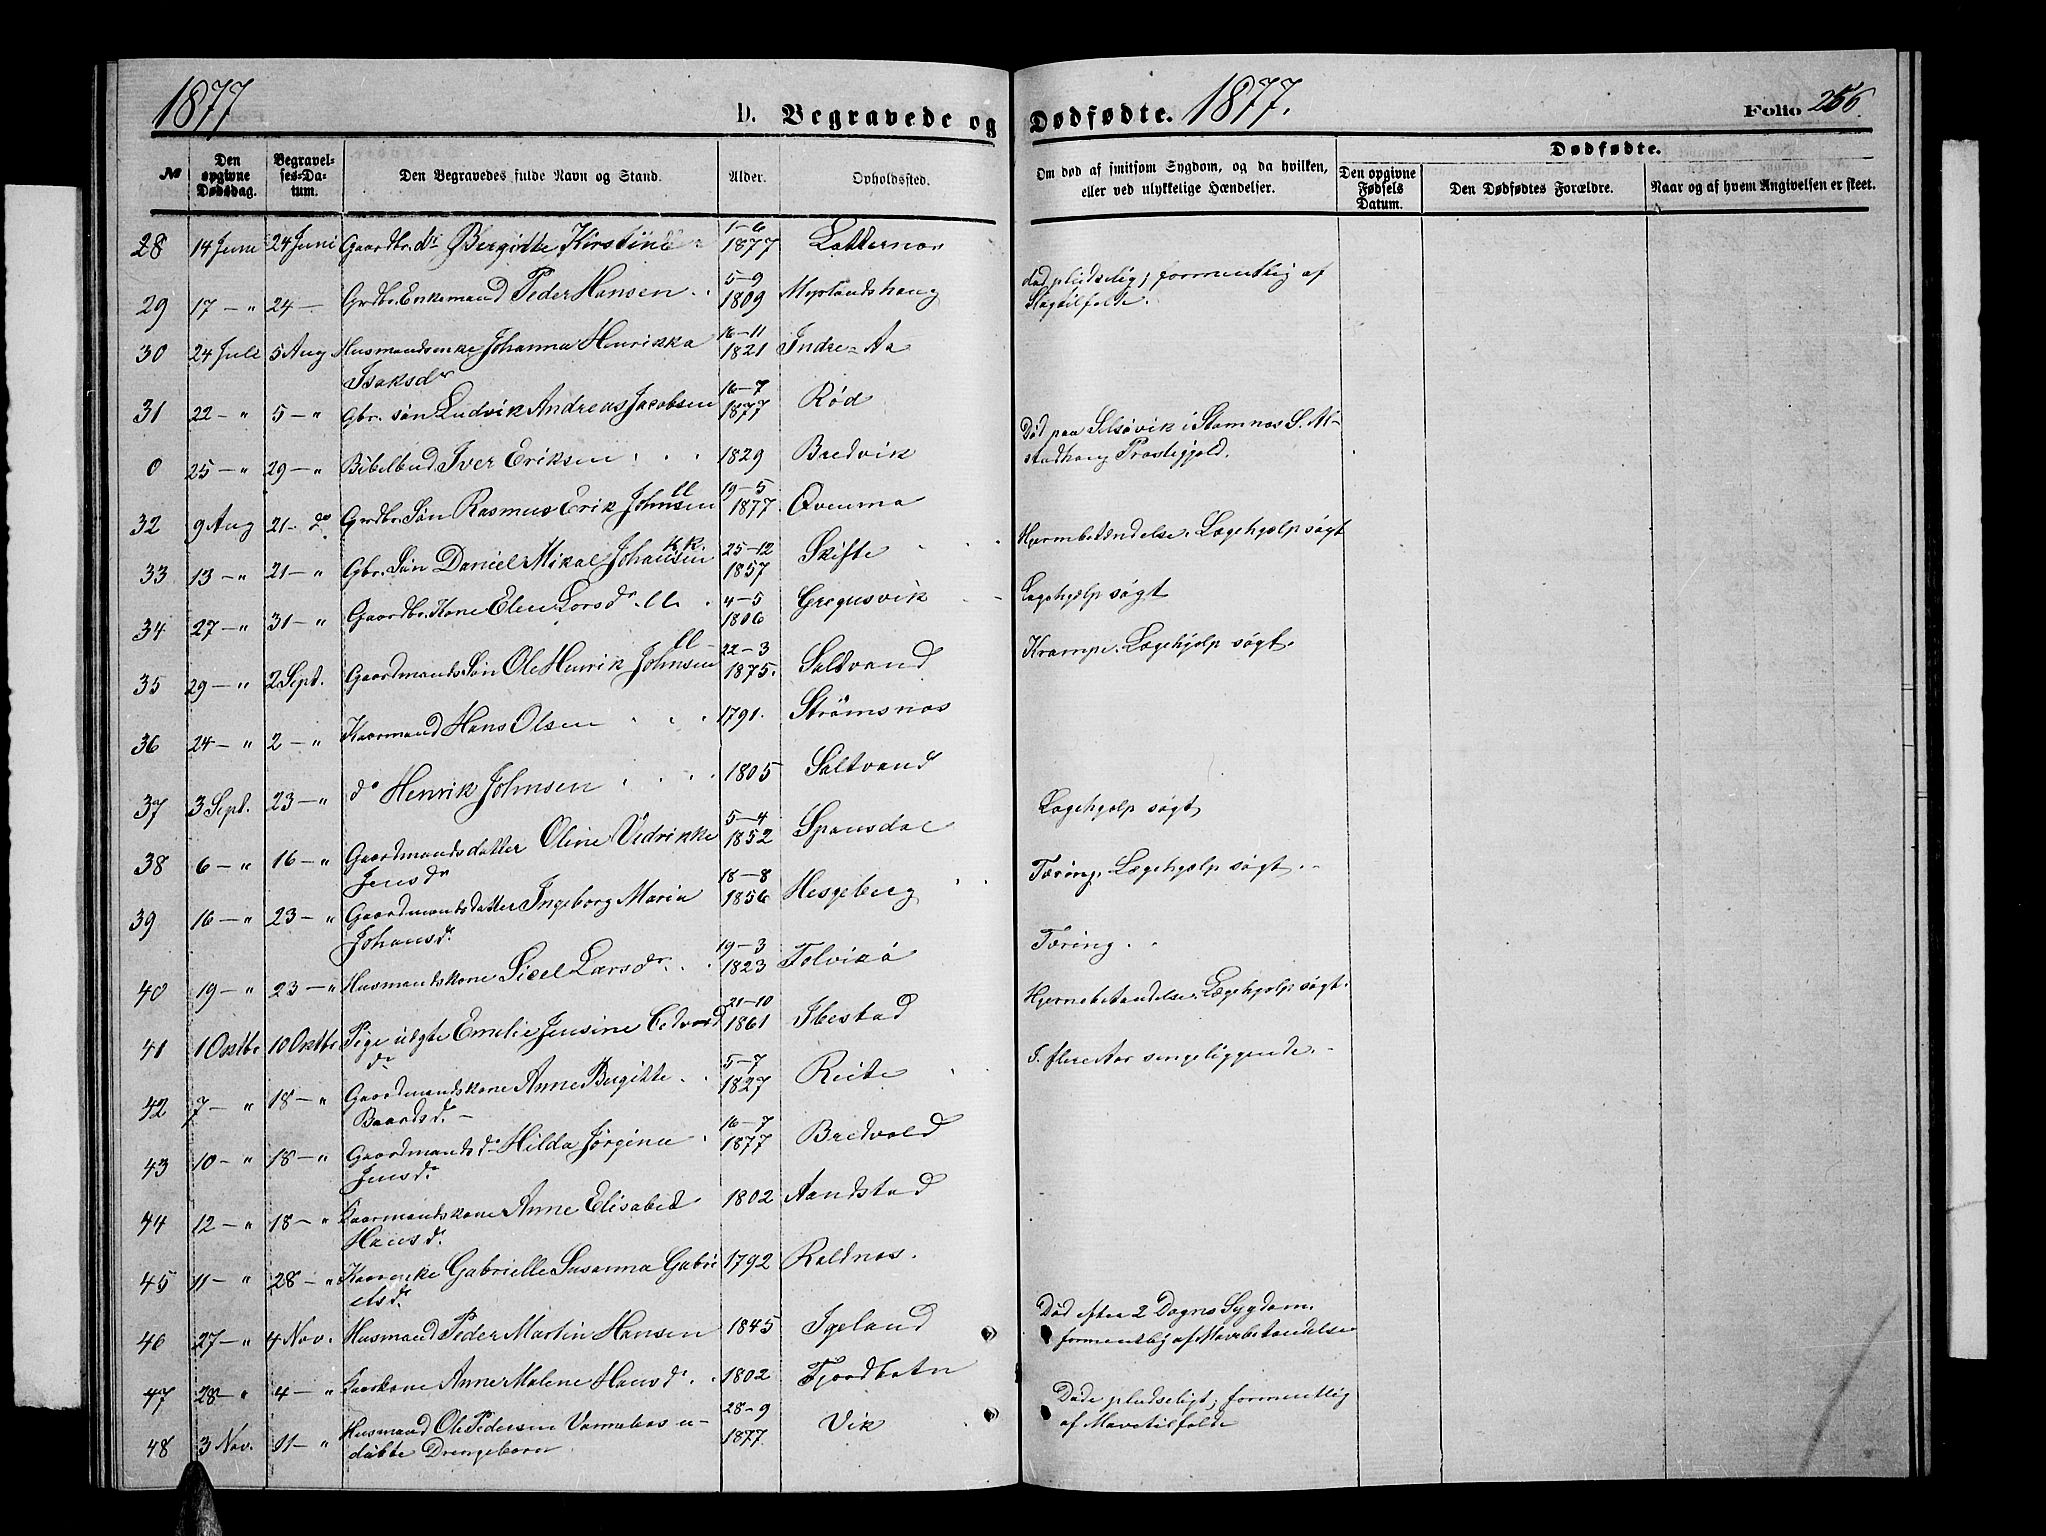 1877 D. Begravede og Dødfødte. 1877. Folio 256.
Dødfødte.
№ Den opgivne Dødsdag. Begravelses-Datum. Den Begravedes fulde Navn og Stand. Alder. Opholdssted. Om død af smitsom Sygdom, og da hvilken, eller ved ulykkelige Hændelser. Den opgivne Fødsels Datum. Den Dødfødtes Forældre. Naar og af hvem Angivelsen er skeet.
28 14 Juni 24 Juni Gaardbr. dr Bergitte Kirstine 1-6 1877
29 17 — " 24 — Grdbr. Enkemand Peder Hansen 5-9 1809 Myrlandshaug død pludselig; formentlig af
Slagtilfælde.
30 24 Juli 5 Aug Husmandsenke Johanna Henrikka 16-11 1821 Indre-Aa
Isaksdr
31 22 — " 5 — " Gbr. søn Ludvik Andreas Jacobsen 16-7 1877 Rød
0 25 — " 29 — " Bibelbud Iver Eriksen 1829 Bredvik Død paa Selsøvik i Stamnes S.
Præstegjeld.
32 9 Aug 21 — do Grdbr. Søn Rasmus Erik Johnsen ll 19-5 1877
33 13 — " 21 — " Gbr. Søn Daniel Mikal Johansen kk. 25-12 1857 Skifte Hjernebetændelse. Lægehjælp søgt
34 27 — " 31 — " Gaardbr. Kone Elen Larsdr. ll 4-5 1806 Gregusvik Lægehjælp søgt
35 29 — " 2 Sept. Gaardmands Søn Ole Henrik Johnsen ll 22-3 1875. Saltvand Krampe. Lægehjælp søgt.
36 24 — " 2 — " Kaarmand Hans Olsen 1791. Strømsnæs
37 3 Sept. 23 — " do Henrik Johnsen 1805 Saltvand
38 6 — " 16 — " Gaardmandsdatter Oline Vedrikke 5-4 1852 Spansdal Lægehjælp søgt
Jensdr
39 16 — " 23 — " Gaardmandsdatter Ingeborg Maria 18-8 1856 Hesgeberg Tæring. Lægehjælp søgt.
Johansdr.
40 19 — " 23 — " Husmandskone Sicel Larsdr. 19-3 1823 Tolvikø Tæring.
41 1 Oktbr 10 Oktbr Pige ugte Emelie Jensine Edvard 21-10 1861 Ibestad Hjernebetændelse. Lægehjælp søgt.
dr
42 7 — " 18 — " Gaardmandskone Anne Birgitte 5-7 1827 Reite I flere Aar sengeliggende.
Baardsdr.
43 10 — " 18 — " Gaardmands dr Hilda Jørgina 16-7 1877 Bredvold
Jensdr.
44 12 — " 18 — " Kaarmandskone Anne Elisabed 1802 Aandstad
Hansdr.
45 11 — " 28 — " Kaarenke Gabrielle Susanna Gabri 1792 Roldnæs.
elsdr.
46 27 — " 4 Nov. Husmand Peder Martin Hansen 1845 Igeland Død efter 2 Dages Sygdom.
formentlig af Mavebetændelse
47 28 — " 4 — " Kaarkone Anne Malene Hansdr. 1802 Fjordbotn
48 3 Nov. 11 — " Husmand Ole Pedersen Vannebos u- 28-9 1877. Vik Døde pludseligt; formentlig
døbte Drengebarn af Mavetilfælde